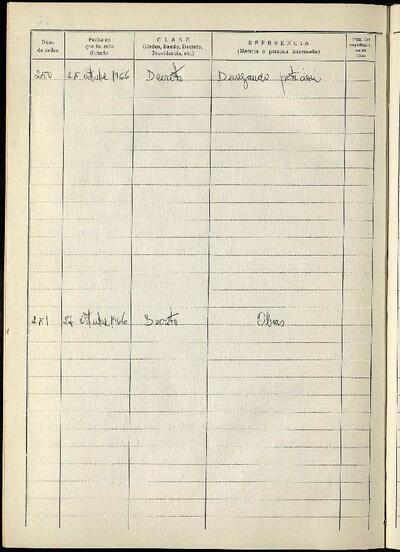 Núm. de orden
Fecha en que ha sido dictado
CLASE (Orden, Bando, Decreto, Providencia, etc.)
REFERENCIA (Materia o persona interesada)
Núm. del expediente
250 25 octubre 1966 Decreto Denegando petición
251 27 octubre 1966 Decreto Obras